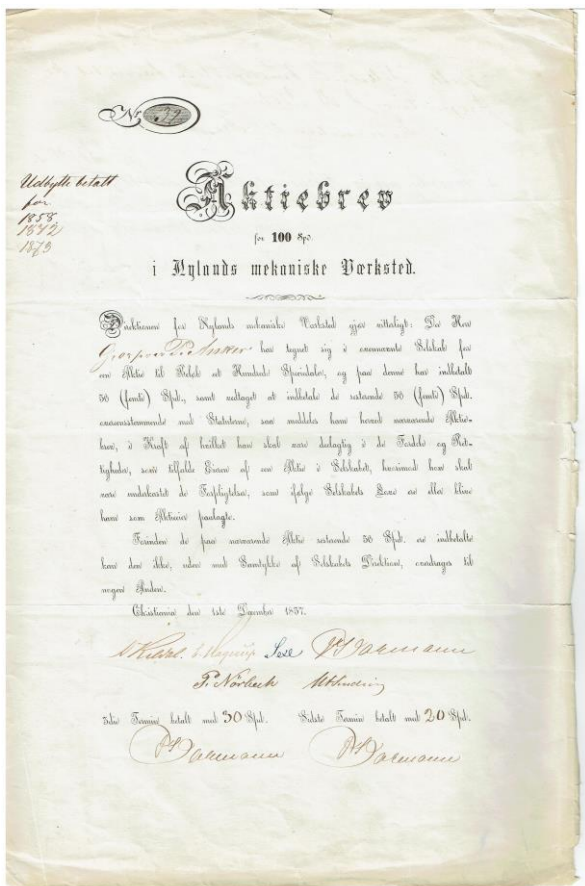 Nr. 39
Udbytte betalt
for
1858,
1872
1873
Aktiebrev
for 100 Spd.
i Nylands mekaniske Værksted.
Direktionen for Nylands mekaniske Værksted gjør vitterligt: Da Herr
har tegnet sig i ovennævnte Selskab for
en Aktie til Beløb et Hundrede Speciedaler, og paa denne har indbetalt
50 (femti) Spd., samt vedtaget at indbetale de resterende 50 (femti) Spd.
overensstemmende med Statuterne, saa meddeles ham herved nærværende Aktie-
brev, i Kraft af hvilket han skal være deelagtig i de Fordele og Ret-
tigheder, som tilfalde Eieren af en Aktie i Selskabet, hvorimod han skal
være underkastet de Forpligtelser, som ifølge Selskabets Love ere eller blive
ham som Aktieeier paalagte.
Forinden de paa nærværende Aktie resterende 50 Spd. ere indbetalte
kan den ikke, uden med Samtykke af Selskabets Direktion, overdrages til
nogen Anden.
Christiania den 1ste December 1857.
Sexe
P. Nørbeck
3die Termin betalt med 30 Spd. Sidste Termin betalt med 20 Spd.